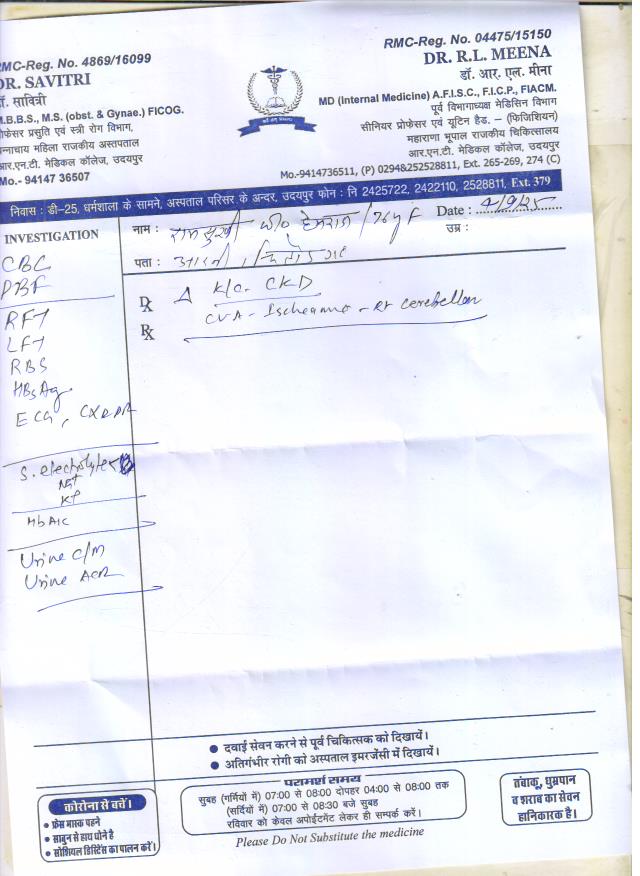 RMC-Reg. No. 4869/16099
DR. SAVITRI
डॉ. सावित्री
M.B.B.S., M.S. (obst. & Gynae.) FICOG.
प्रोफेसर प्रसुति एवं स्त्री रोग विभाग,
पन्नाधाय महिला राजकीय अस्तपताल
आर.एन.टी. मेडिकल कॉलेज, उदयपुर
Mo.- 94147 36507
RMC-Reg. No. 04475/15150
DR. R.L. MEENA
डॉ. आर. एल. मीना
MD (Internal Medicine) A.F.I.S.C., F.I.C.P., FIACM.
पूर्व विभागाध्यक्ष मेडिसिन विभाग
सीनियर प्रोफेसर एवं यूटिन हैड. – (फिजिशियन)
महाराणा भूपाल राजकीय चिकित्सालय
आर.एन.टी. मेडिकल कॉलेज, उदयपुर
Mo.-9414736511, (P) 0294&252528811, Ext. 265-269, 274 (C)
निवास : डी-25, धर्मशाला के सामने, अस्पताल परिसर के अन्दर, उदयपुर फोन : नि 2425722, 2422110, 2528811, Ext. 379
नाम : W/o हेमराज / 76y F Date : 4/9/25
पता : उम्र :
INVESTIGATION
CBC
PBF
RFT
LFT
RBS
HBsAg
ECG, CXR PA
S. electrolytes
Na+
K+
HbA1C
Urine C/M
Urine ACR
Dx Δ K/c. CKD
CVA - Ischeamic - Rt cerebellar
Rx
• दवाई सेवन करने से पूर्व चिकित्सक को दिखायें।
• अतिगंभीर रोगी को अस्पताल इमरजेंसी में दिखायें।
कोरोना से बचें।
• फ्रेस मास्क पहने
• साबुन से हाथ धोने है
• सोशियल डिस्टिंस का पालन करें।
परामर्श समय
सुबह (गर्मियों में) 07:00 से 08:00 दोपहर 04:00 से 08:00 तक
(सर्दियों में) 07:00 से 08:30 बजे सुबह
रविवार को केवल अपोईंटमेंट लेकर ही सम्पर्क करें।
Please Do Not Substitute the medicine
तंबाकू, धुम्रपान
व शराब का सेवन
हानिकारक है।